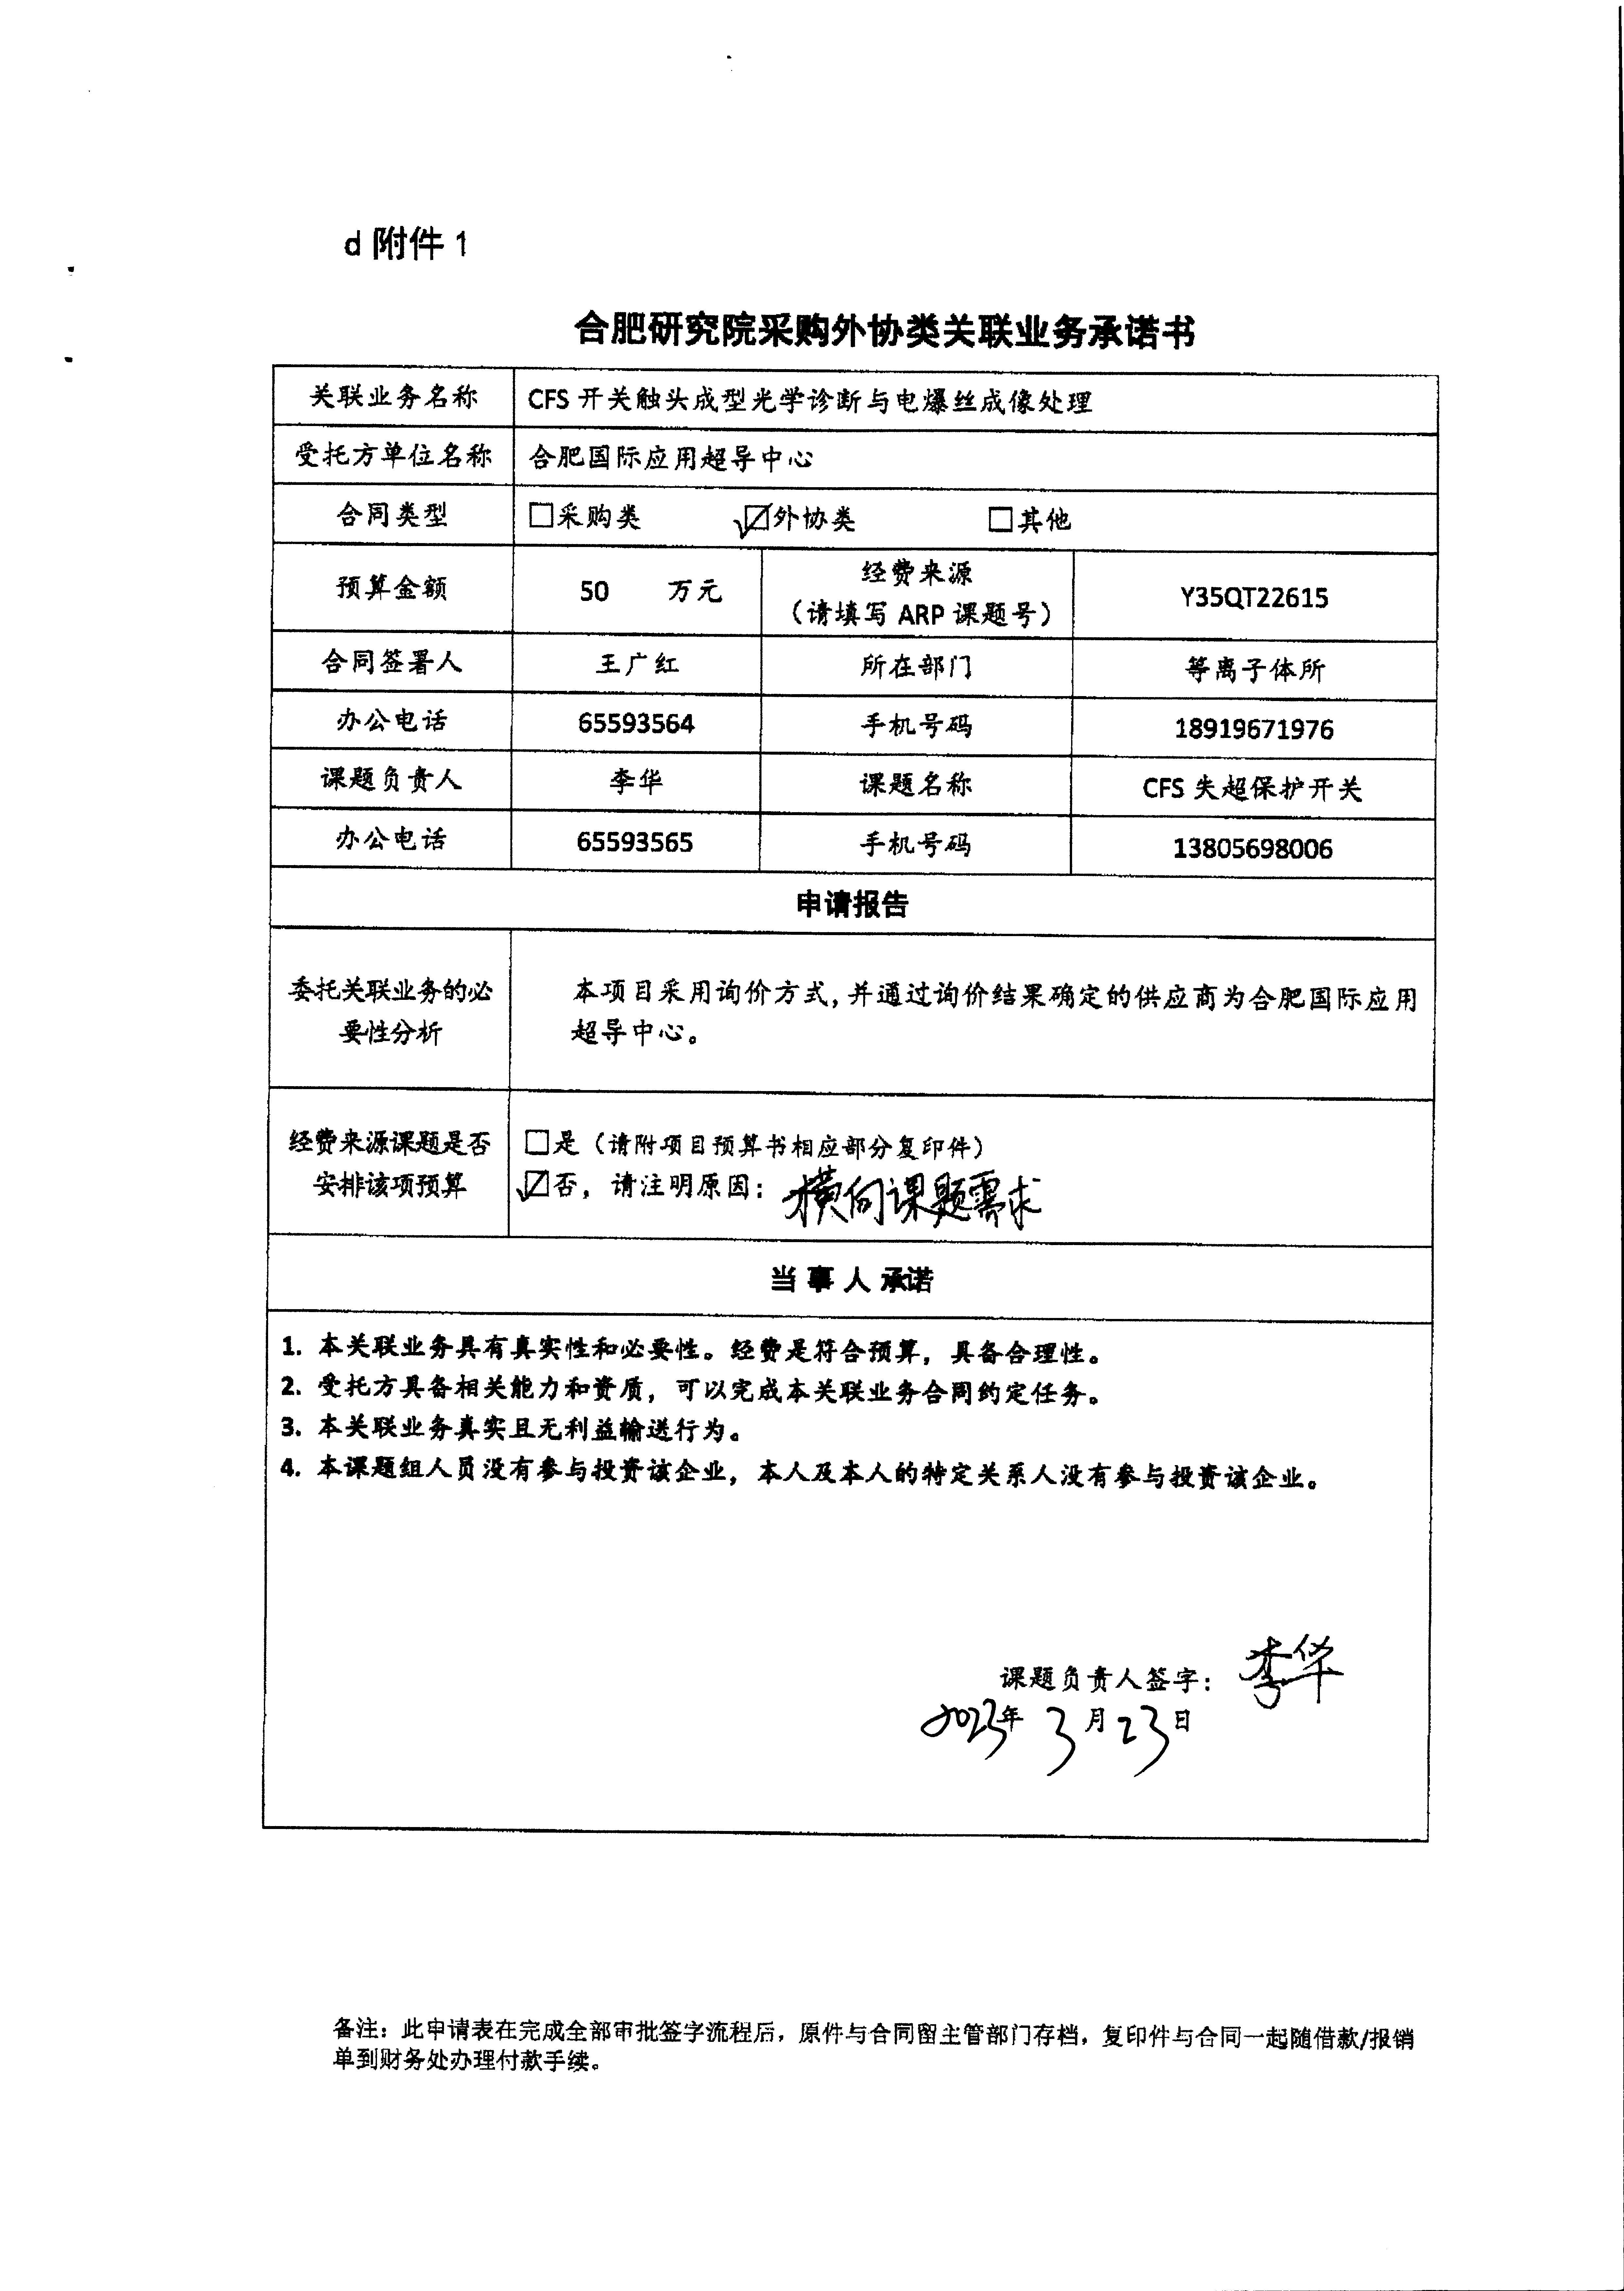 d 附件 1
合肥研究院采购外协类关联业务承诺书
关联业务名称 CFS 开关触头成型光学诊断与电爆丝成像处理
受托方单位名称 合肥国际应用超导中心
合同类型 □采购类 ☑外协类 □其他
预算金额 50 万元 经费来源
（请填写 ARP 课题号） Y35QT22615
合同签署人 王广红 所在部门 等离子体所
办公电话 65593564 手机号码 18919671976
课题负责人 李华 课题名称 CFS 失超保护开关
办公电话 65593565 手机号码 13805698006
申请报告
委托关联业务的必
要性分析
本项目采用询价方式，并通过询价结果确定的供应商为合肥国际应用
超导中心。
经费来源课题是否
安排该项预算
□是（请附项目预算书相应部分复印件）
☑否，请注明原因：横向课题需求
当 事 人 承诺
1. 本关联业务具有真实性和必要性。经费是符合预算，具备合理性。
2. 受托方具备相关能力和资质，可以完成本关联业务合同约定任务。
3. 本关联业务真实且无利益输送行为。
4. 本课题组人员没有参与投资该企业，本人及本人的特定关系人没有参与投资该企业。
课题负责人签字：李华
2023年 3月23日
备注：此申请表在完成全部审批签字流程后，原件与合同留主管部门存档，复印件与合同一起随借款/报销
单到财务处办理付款手续。